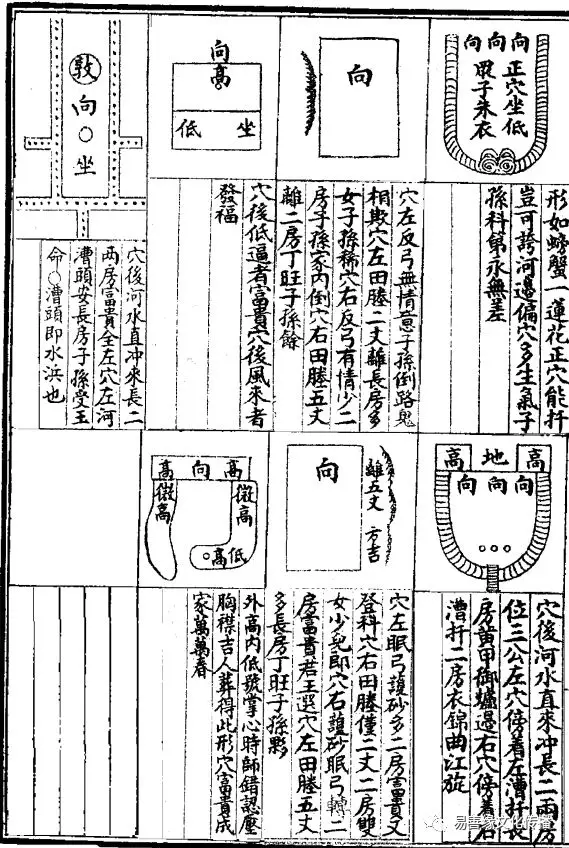 向向向
正穴坐低
眾子朱衣
形如螃蟹一蓮花正穴能扦
豈可誇河邊偏穴多生氣子
孫科第永無差
向
穴左反弓無情意子孫倒路鬼
相欺穴左田塍二丈離長房多
女子孫稀穴右反弓有情少二
房子孫家內倒穴右田塍五丈
離二房丁旺子孫餘
向
高
低 坐
穴後低逼者富貴穴後風來者
發福
敦
向
坐
穴後河水直冲來長二
兩房富貴全左穴左河
漕頭安長房子孫受玉
命○漕頭即水浜也
高 地 高
向向向
穴後河水直來冲長二兩房
位三公左穴傍着左漕扦長
房黃甲御爐過右穴傍着右
漕扦二房衣錦曲江旋
向
離五丈方吉
穴左眠弓護砂多二房富貴又
登科穴右田塍僅二丈二房雙
女少兒郎穴右護砂眠弓轉二
房富貴若王選穴左田塍五丈
多長房丁旺子孫夥
高 向 高
微高
微高
高低
外高內低號掌心時師錯認壓
胸襟吉人葬得此形穴富貴成
家萬萬春
易善緣文化傳播